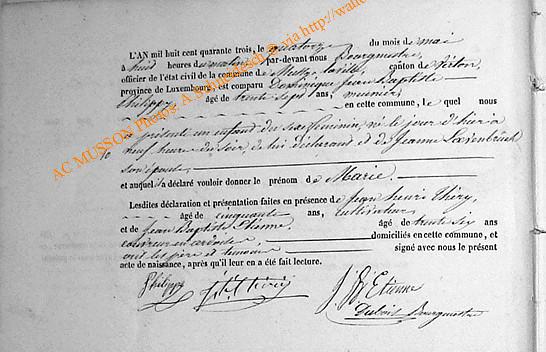 L'AN mil huit cent quarante trois, le quatorze du mois de mai
à huit heures du matin par-devant nous Bourgmestre
officier de l'état civil de la commune de Musson la ville, canton de Virton,
province de Luxembourg, est comparu Dominique Jean Baptiste
Philippe âgé de trente sept ans, meunier
en cette commune, le quel nous
a présenté un enfant du sexe féminin, né le jour d'hier à
neuf heures du soir de lui déclarant et de Jeanne
son épouse
et auquel il a déclaré vouloir donner le prénom de Marie.
Lesdites déclaration et présentation faites en présence de Jean henri Théry,
âgé de cinquante ans, cultivateur,
et de Jean Baptiste Etienne âgé de trente six ans
couvreur en ardoises, domiciliés en cette commune, et
ont les père et témoins signé avec nous le présent
acte de naissance, après qu'il leur en a été fait lecture.
Philippe J. h. Théry J. Bte Etienne
Dubois Bourgmestre
AC MUSSON Photos: A. via http://www